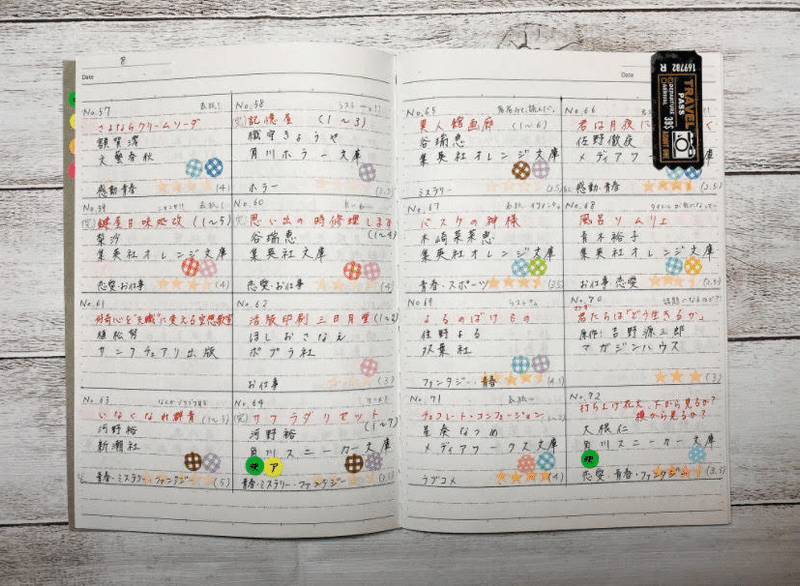 8
Date
No.57
表紙!
さよならクリームソーダ
額賀澪
文藝春秋
感動・青春
(4)
No.58
記憶屋 (1~3)
織守きょうや
角川ホラー文庫
ホラー
(3.5)
No.59
鍵屋甘味処改 (1~5)
梨沙
集英社オレンジ文庫
恋愛・お仕事
(4)
No.60
思い出の時修理します
(1~4)
谷瑞恵
集英社文庫
恋愛・お仕事
(4)
No.61
好奇心を"天職"に変える空想教室
植松努
サンクチュアリ出版
No.62
活版印刷三日月堂 (1~2)
ほしおさなえ
ポプラ社
お仕事
(3)
No.63
いなくなれ群青
河野裕
新潮社
青春・ミステリ・ファンタジー
(5)
No.64
サクラダリセット
(1~7)
河野裕
角川スニーカー文庫
ア
青春・ミステリー・ファンタジー
(3.5)
Date
No.65
異人館画廊 (1~6)
谷瑞恵
集英社オレンジ文庫
ミステリー
(3.5)
No.66
君は月夜に
く
佐野徹夜
メディアワ
感動・青春
(3.5)
169782 R
TRAVEL
PASS
DEPARTURE
ARRIVAL
39$
ADMIT ONE
No.67
バスケの神様
木崎菜菜恵
集英社オレンジ文庫
青春・スポーツ
(3.5)
No.68
風呂ソムリエ
青木祐子
集英社オレンジ文庫
お仕事・恋愛
(3.5)
No.69
よるのばけもの
住野よる
双葉社
ファンタジー・青春
(4.5)
No.70
君たちはどう生きるか
原作:吉野源三郎
マガジンハウス
(3)
No.71
チョコレート・コンフュージョン
星奏なつめ
メディアワークス文庫
ラブコメ
(4)
No.72
打ち上げ花火、下から見るか?
横から見るか?
大根仁
角川スニーカー文庫
映
恋愛・青春・ファンタジー
(3.5)